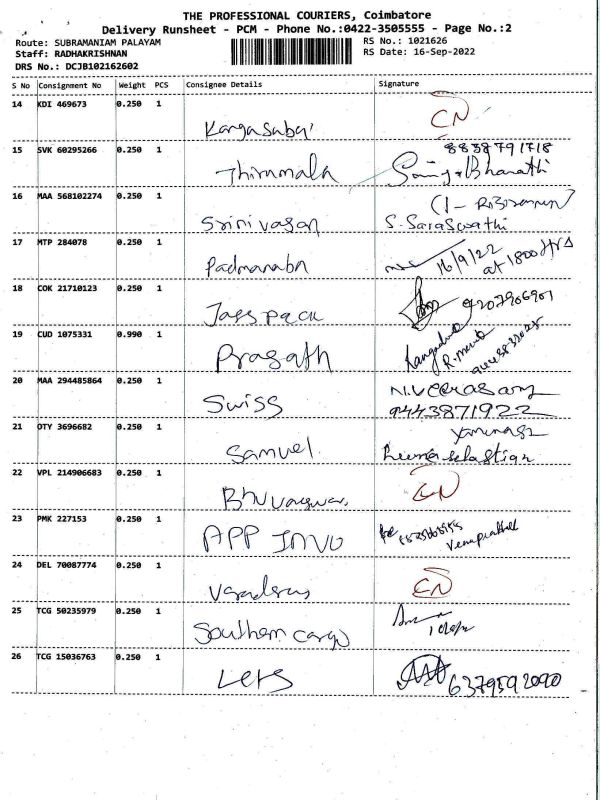 THE PROFESSIONAL COURIERS, Coimbatore
Delivery Runsheet - PCM - Phone No.:0422-3505555 - Page No.:2
Route: SUBRAMANIAM PALAYAM
Staff: RADHAKRISHNAN
DRS No.: DCJB102162602
RS No.: 1021626
RS Date: 16-Sep-2022
S No Consignment No Weight PCS Consignee Details Signature
14 KDI 469673 0.250 1
CN
15 SVK 60295266 0.250 1 8838791718
Thirumala Bharathi
16 MAA 568102274 0.250 1
Srinivasan S. Saraswathi
17 MTP 284078 0.250 1 16/9/22
Padmanabn at 1800 Hrs
18 COK 21710123 0.250 1
Jass pack 9207906901
19 CUD 1075331 0.990 1
Prasath
20 MAA 294485864 0.250 1 N.Veerasamy
Swiss 9443871922
21 OTY 3696682 0.250 1
Samuel sebastian
22 VPL 214906683 0.250 1
CN
23 PMK 227153 0.250 1
APP INVO
24 DEL 70087774 0.250 1
CN
25 TCG 50235979 0.250 1
Southern cargo
26 TCG 15036763 0.250 1
Lets 6379592090